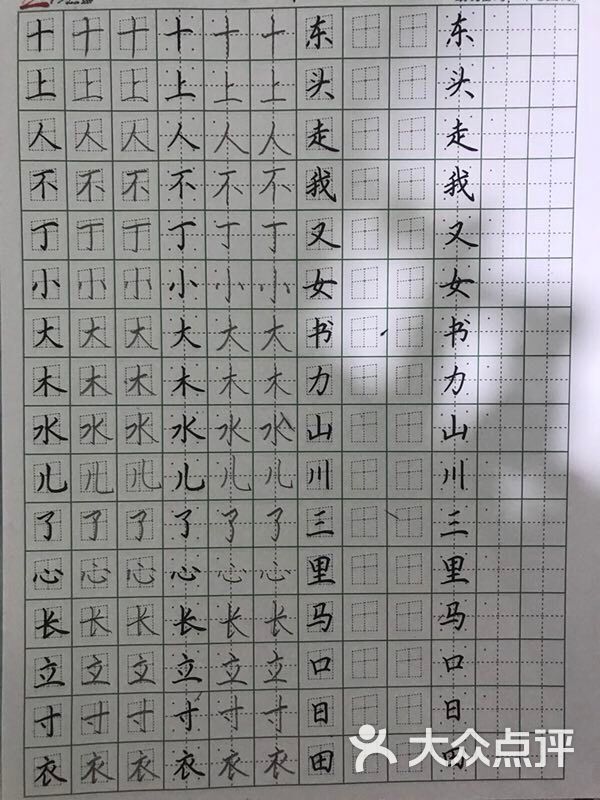 十 十 十 十 十 十 东 东
上 上 上 上 上 上 头 头
人 人 人 人 人 人 走 走
不 不 不 不 不 不 我 我
丁 丁 丁 丁 丁 丁 又 又
小 小 小 小 小 小 女 女
大 大 大 大 大 大 书 书
木 木 木 木 木 木 力 力
水 水 水 水 水 水 山 山
儿 儿 儿 儿 儿 儿 川 川
了 了 了 了 了 了 三 三
心 心 心 心 心 心 里 里
长 长 长 长 长 长 马 马
立 立 立 立 立 立 口 口
寸 寸 寸 寸 寸 寸 日 日
衣 衣 衣 衣 衣 衣 田 田
大众点评